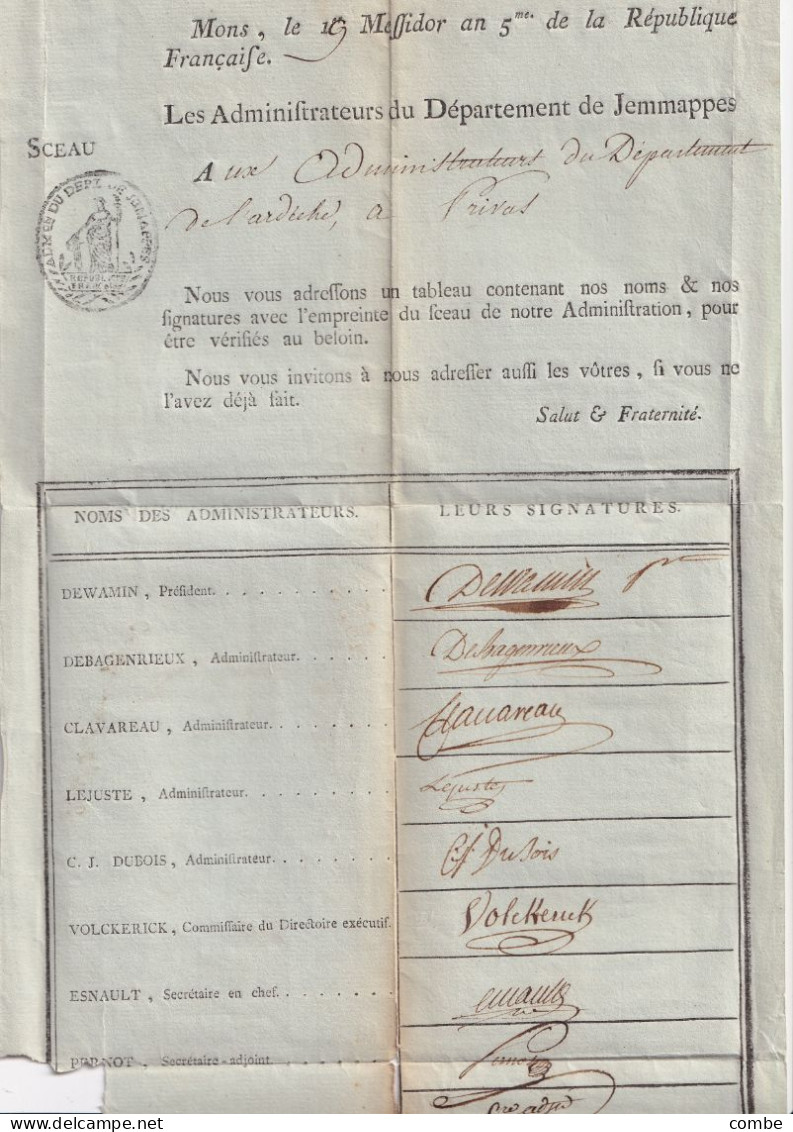 Mons, le 19 Meſſidor an 5me. de la République
Françaiſe.
Les Adminiſtrateurs du Département de Jemmappes
SCEAU
Aux Administrateurs du Département
de l'ardèche, a Privas
ADM.ON DU DEPT. DE JEMMAPPES
REPUBL.
FRANC.
Nous vous adreſſons un tableau contenant nos noms & nos
ſignatures avec l'empreinte du ſceau de notre Adminiſtration, pour
être vérifiés au beſoin.
Nous vous invitons à nous adreſſer auſſi les vôtres, ſi vous ne
l'avez déjà fait.
Salut & Fraternité.
NOMS DES ADMINISTRATEURS. LEURS SIGNATURES.
DEWAMIN, Préſident. . . . . . . . . . . Dewamin pr
DEBAGENRIEUX, Adminiſtrateur. . . . . . . Debagenrieux
CLAVAREAU, Adminiſtrateur. . . . . . . . Clavareau
LEJUSTE, Adminiſtrateur. . . . . . . . . Lejuste
C. J. DUBOIS, Adminiſtrateur. . . . . . . . C.J. DuBois
VOLCKERICK, Commiſſaire du Directoire exécutif. Volckerick
ESNAULT, Secrétaire en chef. . . . . . . . esnault
PERNOT, Secrétaire-adjoint. . . . . . . . Pernot
Sre adjt
delcampe.net
combe